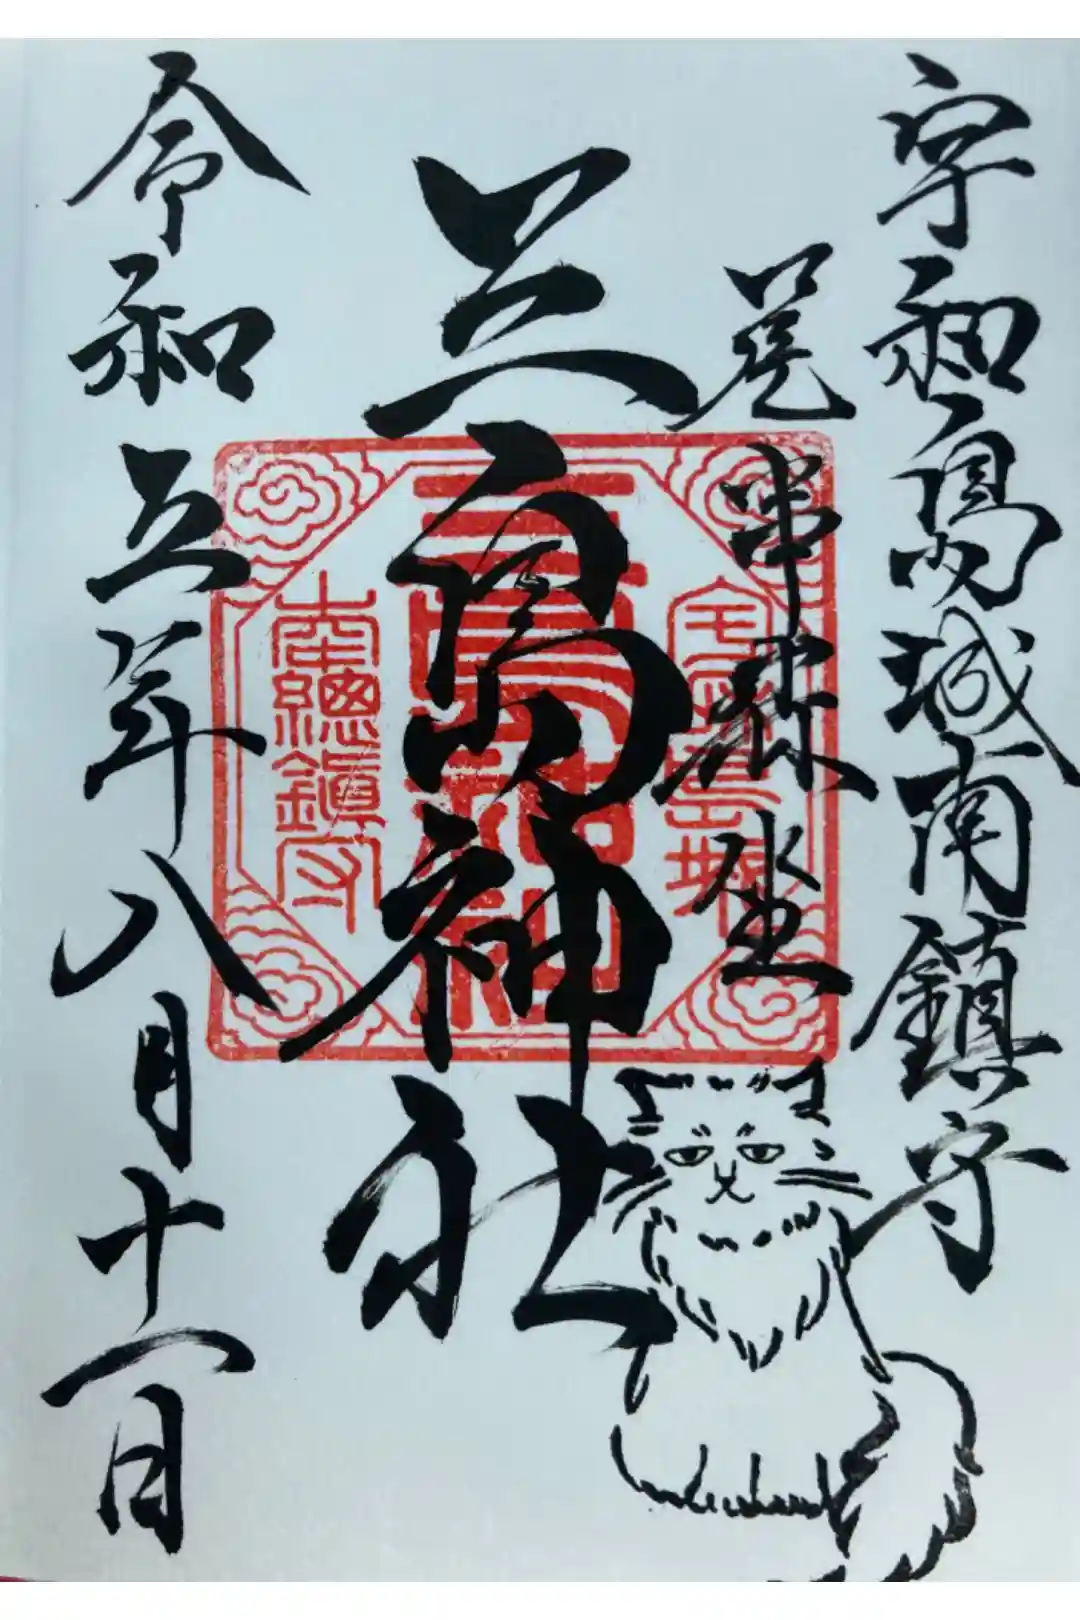 宇和島城南鎮守
串森坐
三島神社
令和五年八月十一日
宇和島城
三島神社
南總鎮守